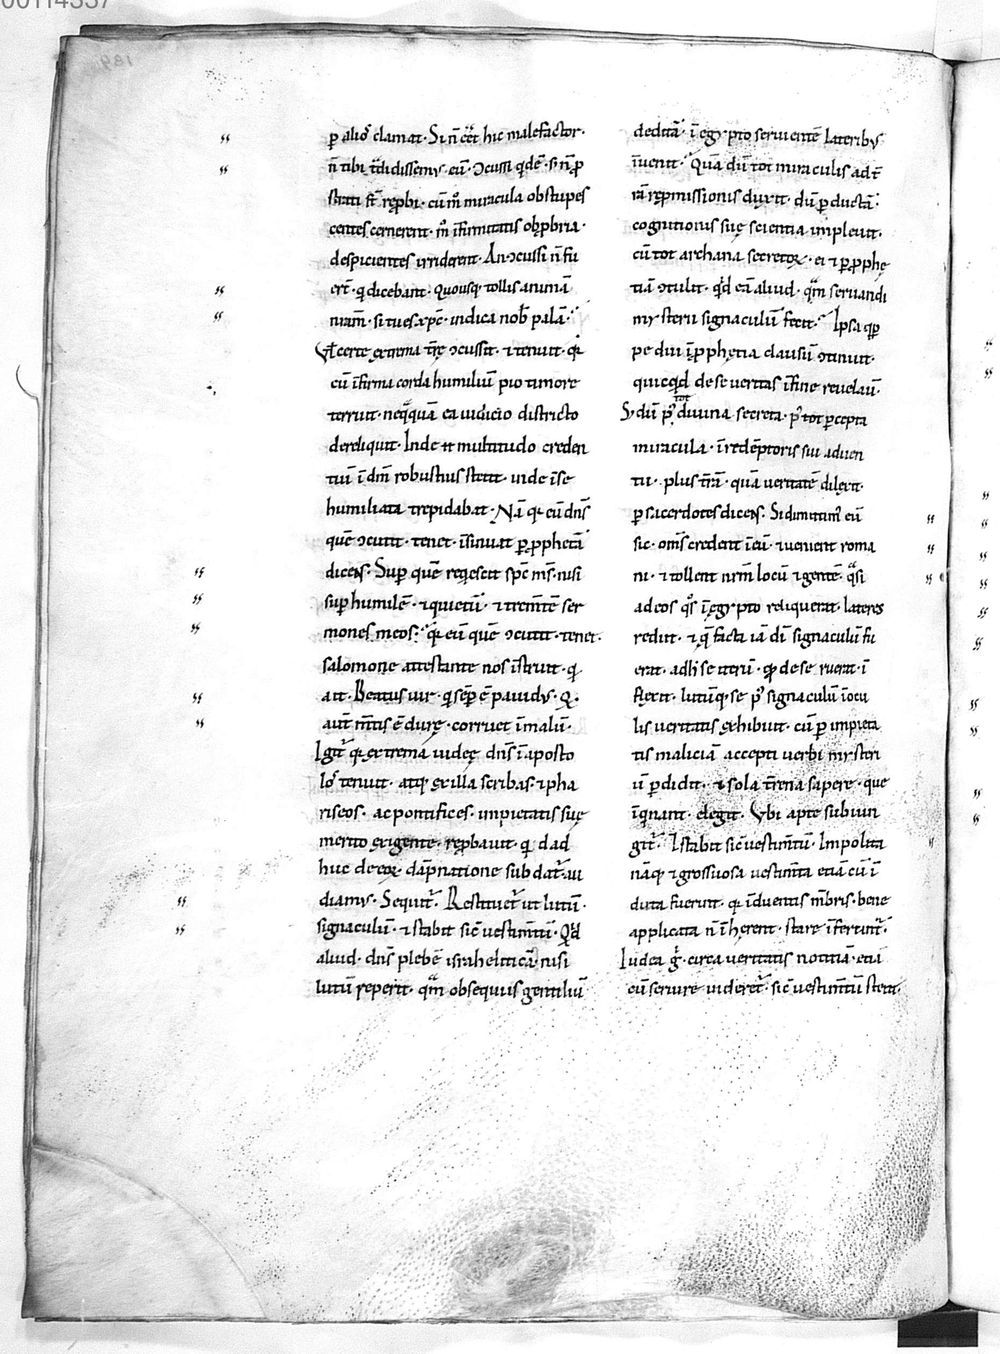 00114337
189
p alios clamat. Si n̄ eēt hic malefactor.
n̄ tibi t̄didissemus eū. Ɔcussi qͥdē. si n̄ p
strati st̄ rep̄bi. cū m̊ miracula obstupes
centes cernerent. m̊ īfirmitatis obp̄bria
despicientes irriderent. An ɔcussi n̄ fu
er̄t. q̇ dicebant. Quousq; tollis animā
nr̄am. si tu es xp̄c. indica nob̄ palā.
Vl̄ certe extrema tr̄ę ɔcussit. ⁊ tenuit. qꝛ
cū īfirma corda humiliū pio timore
terruit. neq̄quā ea iudicio districto
dereliquit. Inde ⁊ multitudo creden
tiū ī dn̄m robustius stetit. unde ī se
humiliata trepidabat. Nā qꝛ eū dn̄s
quē ɔcutit. tenet. īsinuat p p̄phetā
dicens. Sup quē reqͥescit sp̄c ms̄. nisi
sup humilē. ⁊ quietū. ⁊ trem̄tē ser
mones meos. qꝛ eū quē ɔcutit. tenet.
salomone attestante nos īstruit. qͥ
ait. Beatus uir. qͥ semp̄ ē pauidus. Qͥ
aut̄ m̄tis ē durę. corruet ī malū.
Igit̄ qꝛ extrema iudeę dn̄s ī aposto
los tenuit. atq; ex illa scribas. ⁊ pha
riseos. ac pontifices. impietatis suę
merito exigente. rep̄bauit. qͥd ad
huc de eoꝝ dāpnatione subdat̄. au
diamus. Sequit̄. Restituet̄ ut lutū.
signaculū. ⁊ stabit sic̄ uestim̄tū. Qͥd
aliud. dn̄s plebē israheliticā. nisi
lutū reperit. qͣm obsequiis gentiliū
deditā. ī egypto seruientē lateribus
īuenit. Quā dū tot miraculis ad t̄
rā rep̄missionis duxit. dū pductā.
cognitionis suę scientia impleuit.
cū tot archana secretoꝝ. ei ⁊ p p̄phę
tiā ɔtulit. qͥd eā aliud. qͣm seruandi
mysterii signaculū fecit. Ipsa qͥp
pe diu ī p̄phętia clausū ɔtinuit.
quicqͥd de se ueritas ī fine reuelauͥ.
Sꝫ dū p̄ tot diuina secreta. p̄ tot pcepta
miracula. ī redēptoris sui aduen
tu. plus t̄rā. quā ueritatē dilexit.
p sacerdotes dicens. Si dimittim̄ eū
sic. om̄s credent ī eū. ⁊ uenient roma
ni. ⁊ tollent nr̄m locū ⁊ gentē. qͣsi
ad eos qͦs ī egypto reliquerat. lateres
rediit. ⁊ q̄ facta iā dī signaculū fu
erat. ad h̄ se iterū. qd̄ de se ruerat. ī
flexit. lutūq; se p̄ signaculū ī ocu
lis ueritatis exhibuit. cū p impieta
tis maliciā accepti uerbi mysteri
ū pdidit. ⁊ sola t̄rena sapere. que
īqͥnant. elegit. Vbi apte subiun
git̄. ⁊ stabit sic̄ uestim̄tū. Impolita
nāq; ⁊ grossuosa uestim̄ta etiā cū ī
duta fuerint. qꝛ īduentis m̄bris. bene
applicata n̄ īhęrent. stare īferunt̄.
Iudea g̊. circa ueritatis notitiā. etiā
cū seruire uideret̄. sic̄ uestim̄tū stetit.